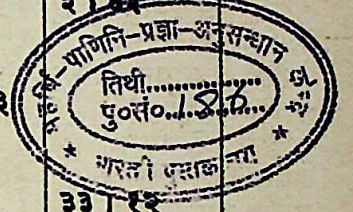 महर्षि-पाणिनि-प्रज्ञा-अनुसन्धान
तिथी..............
पु०सं०.186........
* भारती पुस्तकालय *
३३ । १२